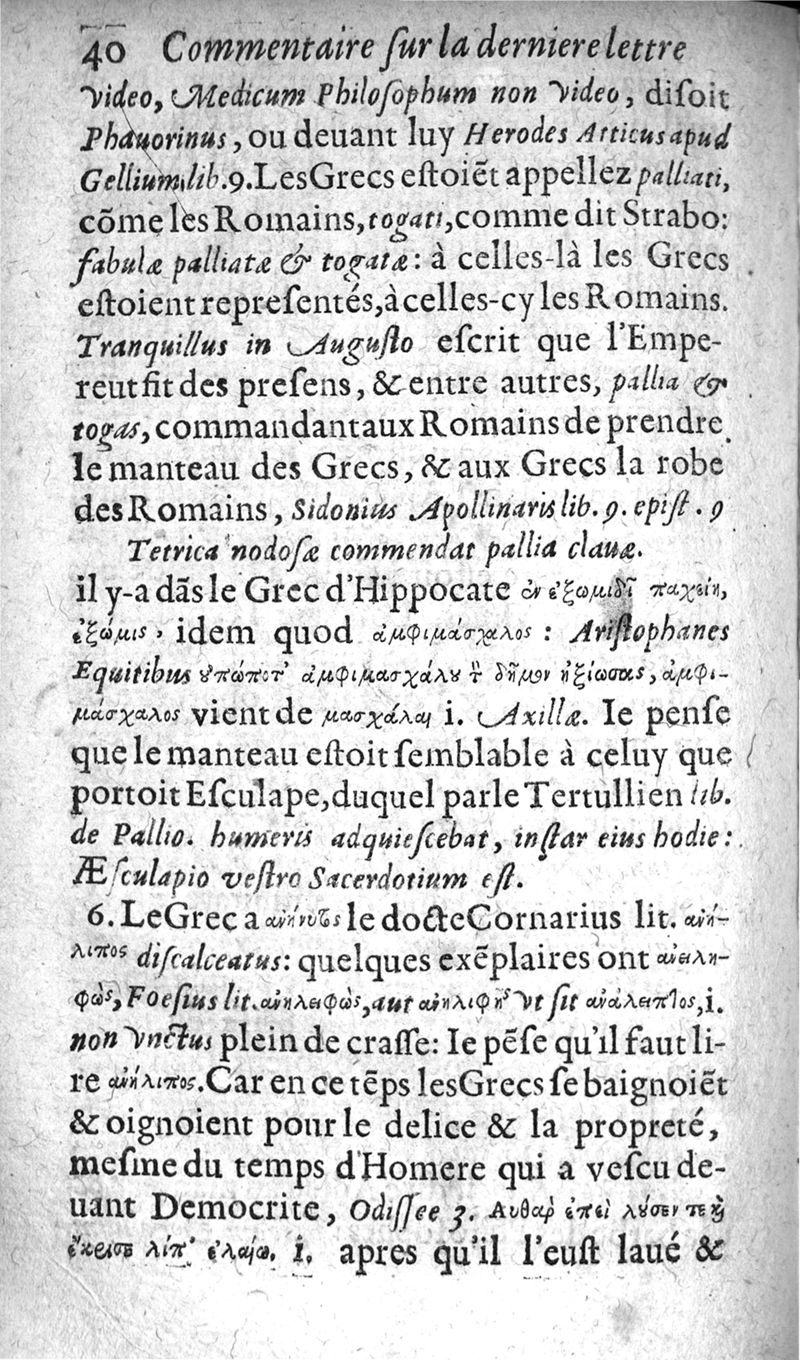 40 Commentaire ſur la derniere lettre
video, Medicum Philoſophum non video, diſoit
Phauorinus, ou deuant luy Herodes Atticus apud
Gellium lib. 9. Les Grecs eſtoiẽt appellez palliati,
cõme les Romains, togati, comme dit Strabo:
fabulæ palliatæ & togatæ: à celles-là les Grecs
eſtoient repreſentés, à celles-cy les Romains.
Tranquillus in Auguſto eſcrit que l'Empe-
reut fit des preſens, & entre autres, pallia &
togas, commandant aux Romains de prendre
le manteau des Grecs, & aux Grecs la robe
des Romains, Sidonius Apollinaris lib. 9. epiſt. 9
Tetrica nodoſæ commendat pallia clauæ.
il y-a dãs le Grec d'Hippocate ἐν ἐξωμίδι παχείῃ,
ἐξώμις, idem quod ἀμφιμάσχαλος : Ariſtophanes
Equitibus ȣ̓πώποτ' ἀμφιμασχάλȣ τ̃ δῆμον ἠξίωσας, ἀμφι-
μάσχαλος vient de μασχάλαι i. Axillæ. Ie penſe
que le manteau eſtoit ſemblable à celuy que
portoit Eſculape, duquel parle Tertullien lib.
de Pallio. humeris adquieſcebat, inſtar eius hodie:
Æſculapio veſtro Sacerdotium eſt.
6. Le Grec a ἀνήνυτος le docte Cornarius lit. ἀνή-
λιπος diſcalceatus: quelques exẽplaires ont ἀνειλη-
φὼς, Foeſius lit. ἀνηλειφὼς, aut ἀνηλιφὴς vt ſit ἀνάλειπτος, i.
non vnctus plein de craſſe: Ie pẽſe qu'il faut li-
re ἀνήλιπος. Car en ce tẽps les Grecs ſe baignoiẽt
& oignoient pour le delice & la propreté,
meſme du temps d'Homere qui a veſcu de-
uant Democrite, Odiſſee 3. Αυθαρ ἐπεὶ λοῦσεν τε καὶ
ἔχρισε λίπ' ἐλαίῳ. i. apres qu'il l'euſt laué &